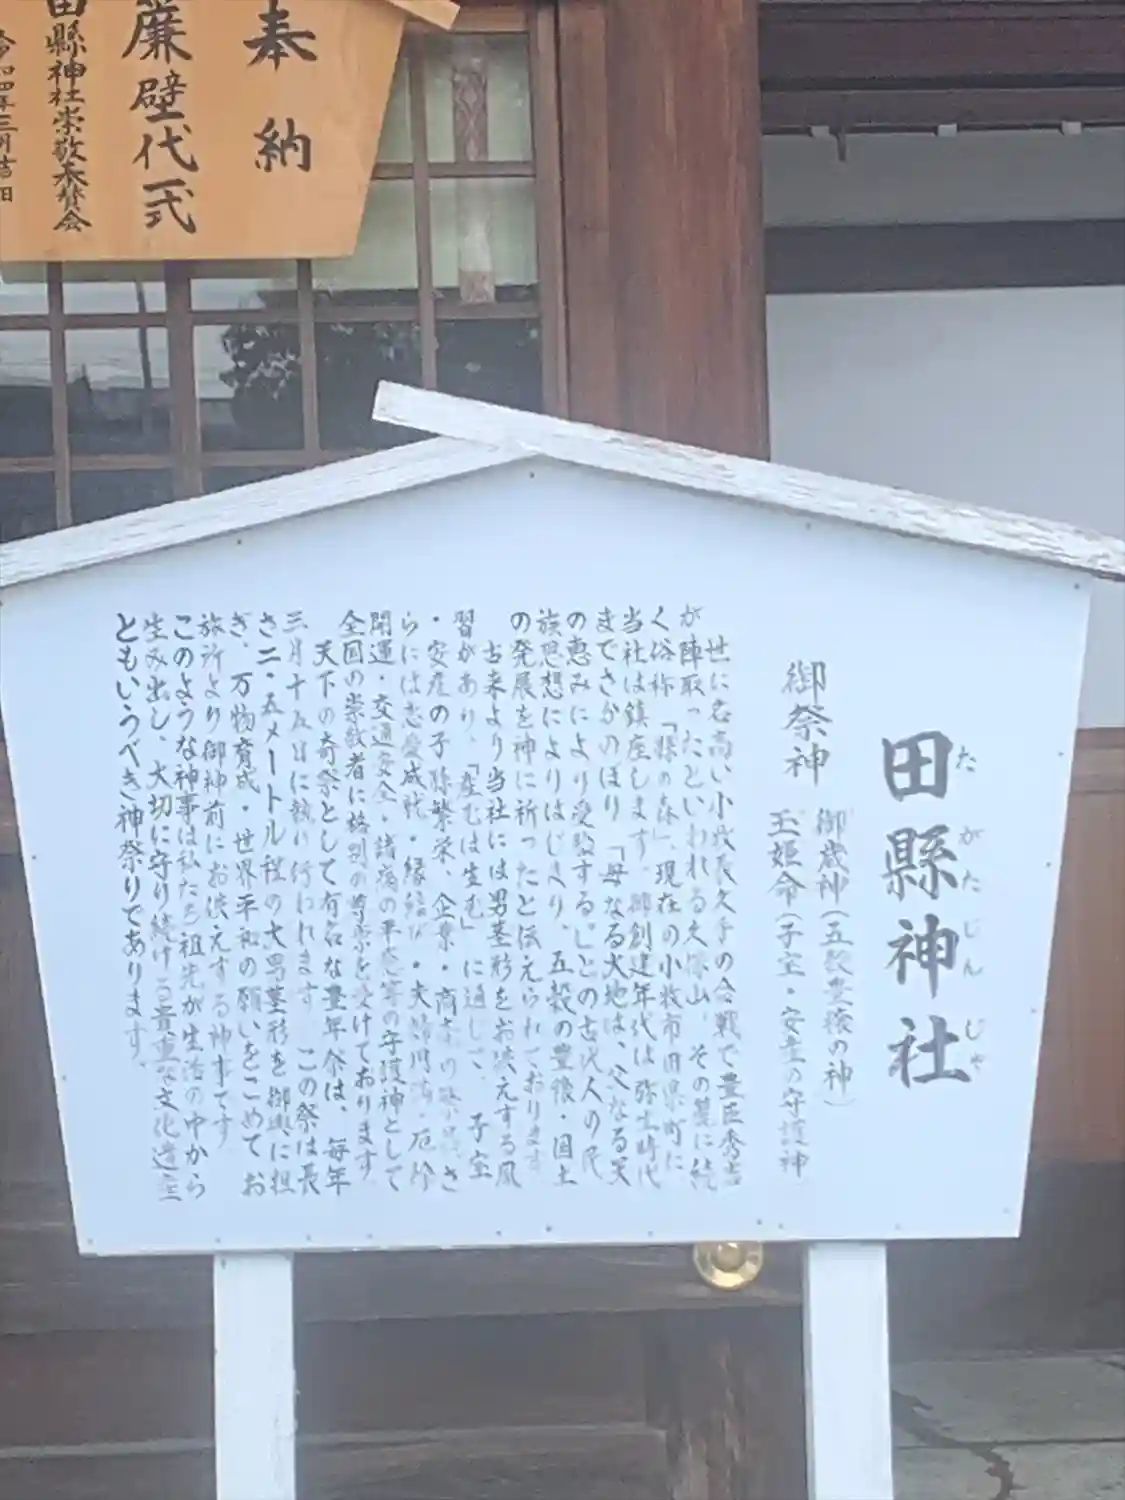 奉納
簾壁代一式
田縣神社崇敬奉賛会
令和四年三月吉日
田縣神社
たがたじんじゃ
御祭神
御歳神(五穀豊穣の神)
玉姫命(子宝・安産の守護神
世に名高い小牧長久手の合戦で豊臣秀吉
が陣取ったといわれる久保山、その麓に続
く俗称「縣の森」、現在の小牧市田県町に
当社は鎮座します。御創建年代は弥生時代
までさかのぼり「母なる大地は、父なる天
の恵みにより受胎する。」との古代人の民
族思想によりはじまり、五穀の豊穣・国土
の発展を神に祈ったと伝えられております
古来より当社には男茎形をお供えする風
習があり、「産むは生む」に通じて、子宝
・安産の子孫繁栄、企業・商売の繁昌、さ
らには恋愛成就・縁結び・夫婦円満・厄除
開運・交通安全・諸病の平癒等の守護神として
全国の崇敬者に格別の尊崇を受けております
天下の奇祭として有名な豊年祭は、毎年
三月十五日に執り行われます。この祭は長
さ二・五メートル程の大男茎形を御輿に担
ぎ、万物育成・世界平和の願いをこめてお
旅所より御神前にお供えする神事です
このような神事は私たち祖先が生活の中から
生み出し、大切に守り続ける貴重な文化遺産
ともいうべき神祭りであります。